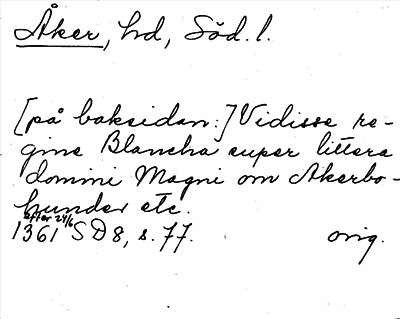 Åker, hd, Söd. l.
[på baksidan:] Vidisse re-
gine Blancha super littera
domini Magni om Akerbo-
hundar etc.
efter 24/6
1361 SD 8, s. 77. orig.